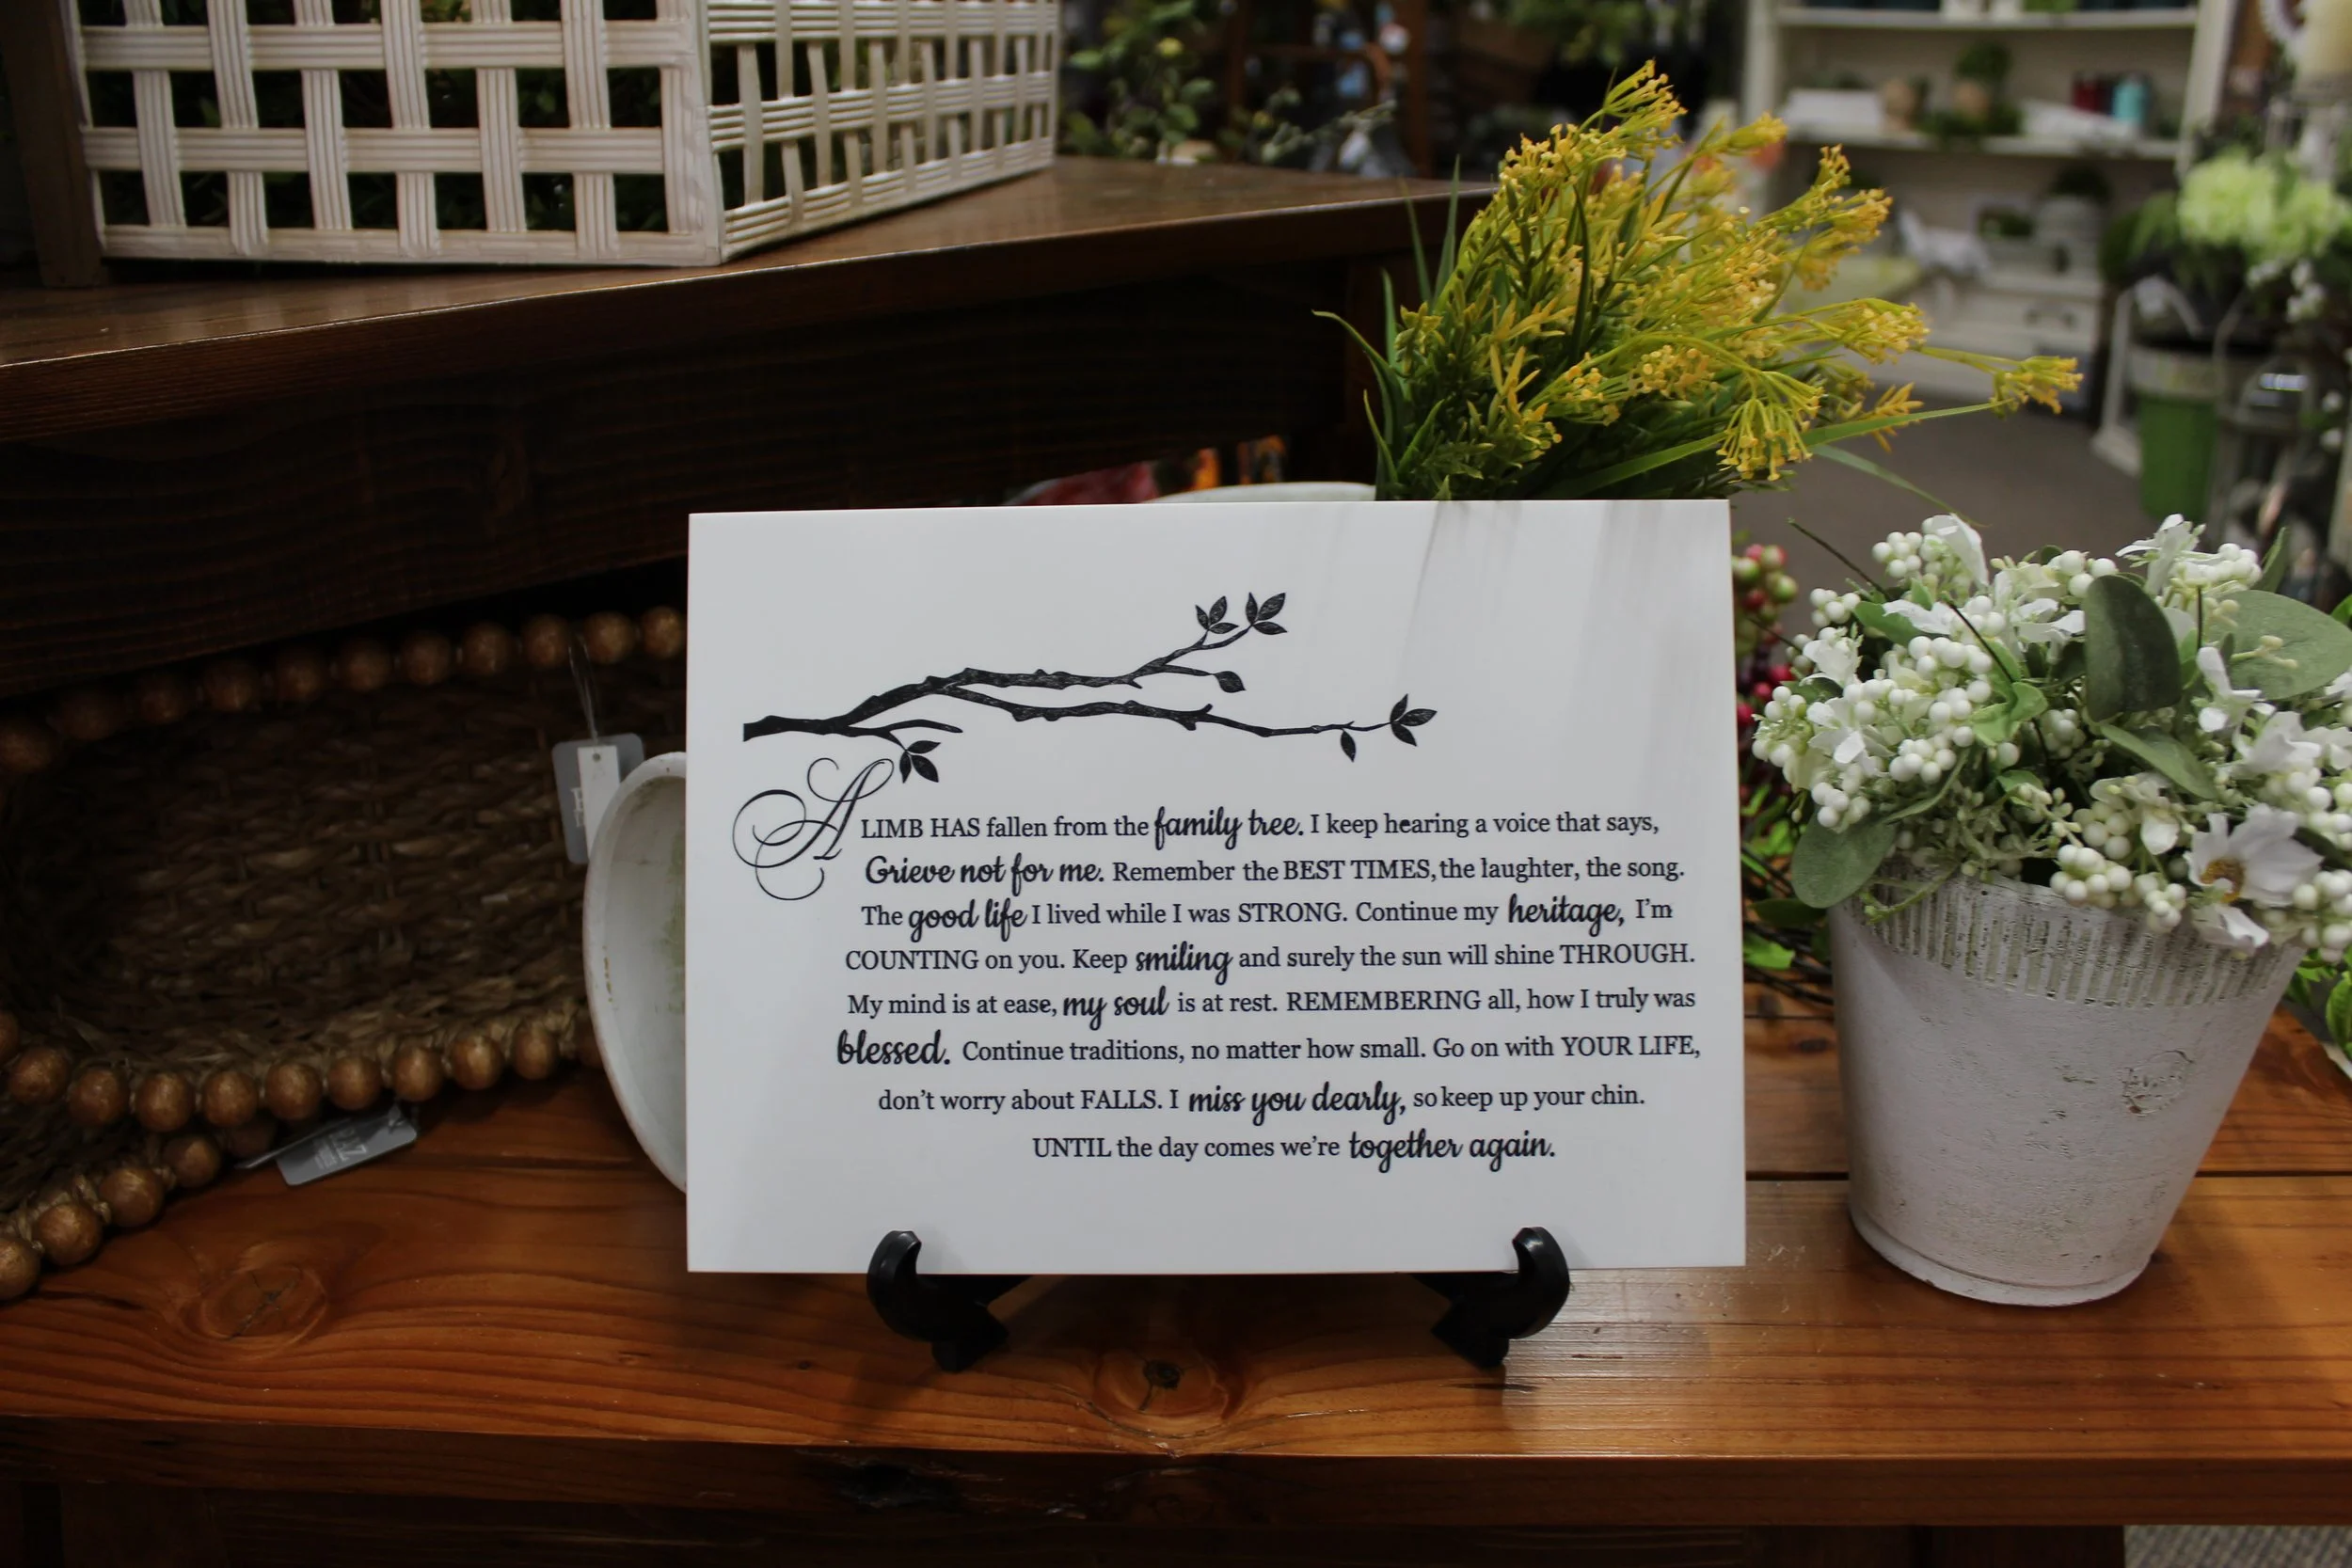 A LIMB HAS fallen from the family tree. I keep hearing a voice that says,
Grieve not for me. Remember the BEST TIMES, the laughter, the song.
The good life I lived while I was STRONG. Continue my heritage, I'm
COUNTING on you. Keep smiling and surely the sun will shine THROUGH.
My mind is at ease, my soul is at rest. REMEMBERING all, how I truly was
blessed. Continue traditions, no matter how small. Go on with YOUR LIFE,
don't worry about FALLS. I miss you dearly, so keep up your chin.
UNTIL the day comes we're together again.